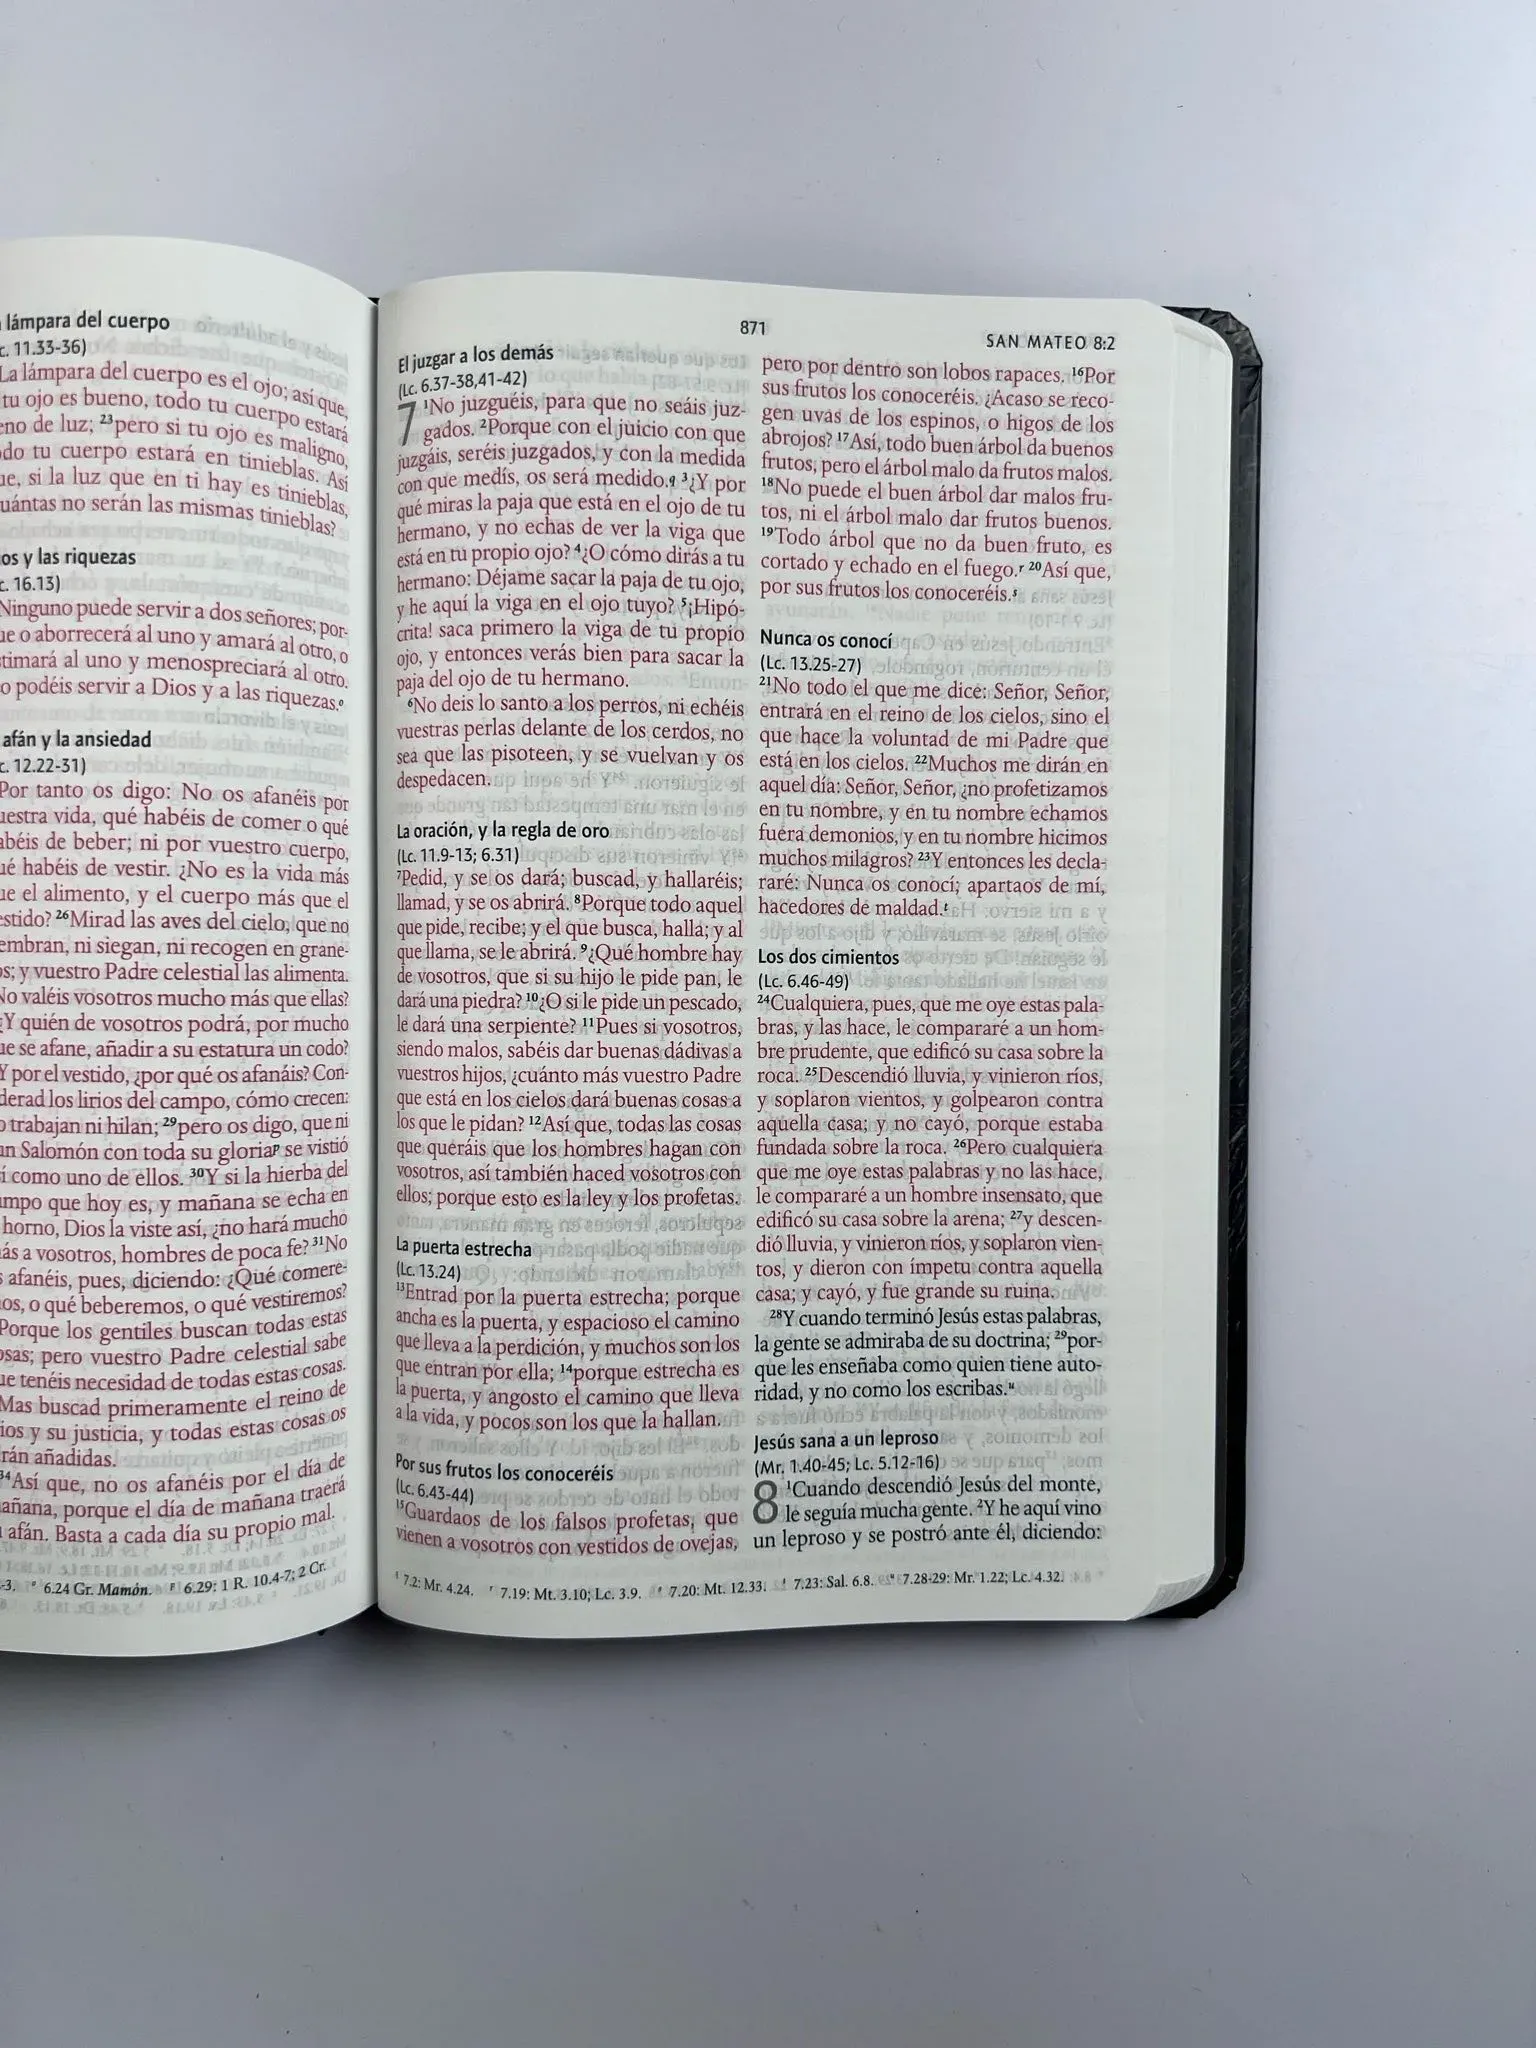 lámpara del cuerpo
c. 11.33-36)
La lámpara del cuerpo es el ojo; así que,
tu ojo es bueno, todo tu cuerpo estará
eno de luz; ²³pero si tu ojo es maligno,
do tu cuerpo estará en tinieblas. Así
ue, si la luz que en ti hay es tinieblas,
uántas no serán las mismas tinieblas?
os y las riquezas
c. 16.13)
Ninguno puede servir a dos señores; por-
ue o aborrecerá al uno y amará al otro, o
stimará al uno y menospreciará al otro.
o podéis servir a Dios y a las riquezas.ᵒ
afán y la ansiedad
c. 12.22-31)
Por tanto os digo: No os afanéis por
uestra vida, qué habéis de comer o qué
abéis de beber; ni por vuestro cuerpo,
ué habéis de vestir. ¿No es la vida más
ue el alimento, y el cuerpo más que el
estido? ²⁶Mirad las aves del cielo, que no
embran, ni siegan, ni recogen en grane-
os; y vuestro Padre celestial las alimenta.
No valéis vosotros mucho más que ellas?
¿Y quién de vosotros podrá, por mucho
ue se afane, añadir a su estatura un codo?
Y por el vestido, ¿por qué os afanáis? Con-
derad los lirios del campo, cómo crecen:
o trabajan ni hilan; ²⁹pero os digo, que ni
un Salomón con toda su gloriaᵖ se vistió
í como uno de ellos. ³⁰Y si la hierba del
ampo que hoy es, y mañana se echa en
horno, Dios la viste así, ¿no hará mucho
ás a vosotros, hombres de poca fe? ³¹No
s afanéis, pues, diciendo: ¿Qué comere-
os, o qué beberemos, o qué vestiremos?
Porque los gentiles buscan todas estas
osas; pero vuestro Padre celestial sabe
ue tenéis necesidad de todas estas cosas.
Mas buscad primeramente el reino de
ios y su justicia, y todas estas cosas os
rán añadidas.
³⁴Así que, no os afanéis por el día de
añana, porque el día de mañana traerá
u afán. Basta a cada día su propio mal.
-3. ᵒ 6.24 Gr. Mamón. ᵖ 6.29: 1 R. 10.4-7; 2 Cr.
871
SAN MATEO 8:2
El juzgar a los demás
(Lc. 6.37-38,41-42)
7 ¹No juzguéis, para que no seáis juz-
gados. ²Porque con el juicio con que
juzgáis, seréis juzgados, y con la medida
con que medís, os será medido.q ³¿Y por
qué miras la paja que está en el ojo de tu
hermano, y no echas de ver la viga que
está en tu propio ojo? ⁴¿O cómo dirás a tu
hermano: Déjame sacar la paja de tu ojo,
y he aquí la viga en el ojo tuyo? ⁵¡Hipó-
crita! saca primero la viga de tu propio
ojo, y entonces verás bien para sacar la
paja del ojo de tu hermano.
⁶No deis lo santo a los perros, ni echéis
vuestras perlas delante de los cerdos, no
sea que las pisoteen, y se vuelvan y os
despedacen.
La oración, y la regla de oro
(Lc. 11.9-13; 6.31)
⁷Pedid, y se os dará; buscad, y hallaréis;
llamad, y se os abrirá. ⁸Porque todo aquel
que pide, recibe; y el que busca, halla; y al
que llama, se le abrirá. ⁹¿Qué hombre hay
de vosotros, que si su hijo le pide pan, le
dará una piedra? ¹⁰¿O si le pide un pescado,
le dará una serpiente? ¹¹Pues si vosotros,
siendo malos, sabéis dar buenas dádivas a
vuestros hijos, ¿cuánto más vuestro Padre
que está en los cielos dará buenas cosas a
los que le pidan? ¹²Así que, todas las cosas
que queráis que los hombres hagan con
vosotros, así también haced vosotros con
ellos; porque esto es la ley y los profetas.
La puerta estrecha
(Lc. 13.24)
¹³Entrad por la puerta estrecha; porque
ancha es la puerta, y espacioso el camino
que lleva a la perdición, y muchos son los
que entran por ella; ¹⁴porque estrecha es
la puerta, y angosto el camino que lleva
a la vida, y pocos son los que la hallan.
Por sus frutos los conoceréis
(Lc. 6.43-44)
¹⁵Guardaos de los falsos profetas, que
vienen a vosotros con vestidos de ovejas,
pero por dentro son lobos rapaces. ¹⁶Por
sus frutos los conoceréis. ¿Acaso se reco-
gen uvas de los espinos, o higos de los
abrojos? ¹⁷Así, todo buen árbol da buenos
frutos, pero el árbol malo da frutos malos.
¹⁸No puede el buen árbol dar malos fru-
tos, ni el árbol malo dar frutos buenos.
¹⁹Todo árbol que no da buen fruto, es
cortado y echado en el fuego.ʳ ²⁰Así que,
por sus frutos los conoceréis.ˢ
Nunca os conocí
(Lc. 13.25-27)
²¹No todo el que me dice: Señor, Señor,
entrará en el reino de los cielos, sino el
que hace la voluntad de mi Padre que
está en los cielos. ²²Muchos me dirán en
aquel día: Señor, Señor, ¿no profetizamos
en tu nombre, y en tu nombre echamos
fuera demonios, y en tu nombre hicimos
muchos milagros? ²³Y entonces les decla-
raré: Nunca os conocí; apartaos de mí,
hacedores de maldad.ᵗ
Los dos cimientos
(Lc. 6.46-49)
²⁴Cualquiera, pues, que me oye estas pala-
bras, y las hace, le compararé a un hom-
bre prudente, que edificó su casa sobre la
roca. ²⁵Descendió lluvia, y vinieron ríos,
y soplaron vientos, y golpearon contra
aquella casa; y no cayó, porque estaba
fundada sobre la roca. ²⁶Pero cualquiera
que me oye estas palabras y no las hace,
le compararé a un hombre insensato, que
edificó su casa sobre la arena; ²⁷y descen-
dió lluvia, y vinieron ríos, y soplaron vien-
tos, y dieron con ímpetu contra aquella
casa; y cayó, y fue grande su ruina.
²⁸Y cuando terminó Jesús estas palabras,
la gente se admiraba de su doctrina; ²⁹por-
que les enseñaba como quien tiene auto-
ridad, y no como los escribas.ᵘ
Jesús sana a un leproso
(Mr. 1.40-45; Lc. 5.12-16)
8 ¹Cuando descendió Jesús del monte,
le seguía mucha gente. ²Y he aquí vino
un leproso y se postró ante él, diciendo:
q 7.2: Mr. 4.24. ʳ 7.19: Mt. 3.10; Lc. 3.9. ˢ 7.20: Mt. 12.33. ᵗ 7.23: Sal. 6.8. ᵘ 7.28-29: Mr. 1.22; Lc. 4.32.